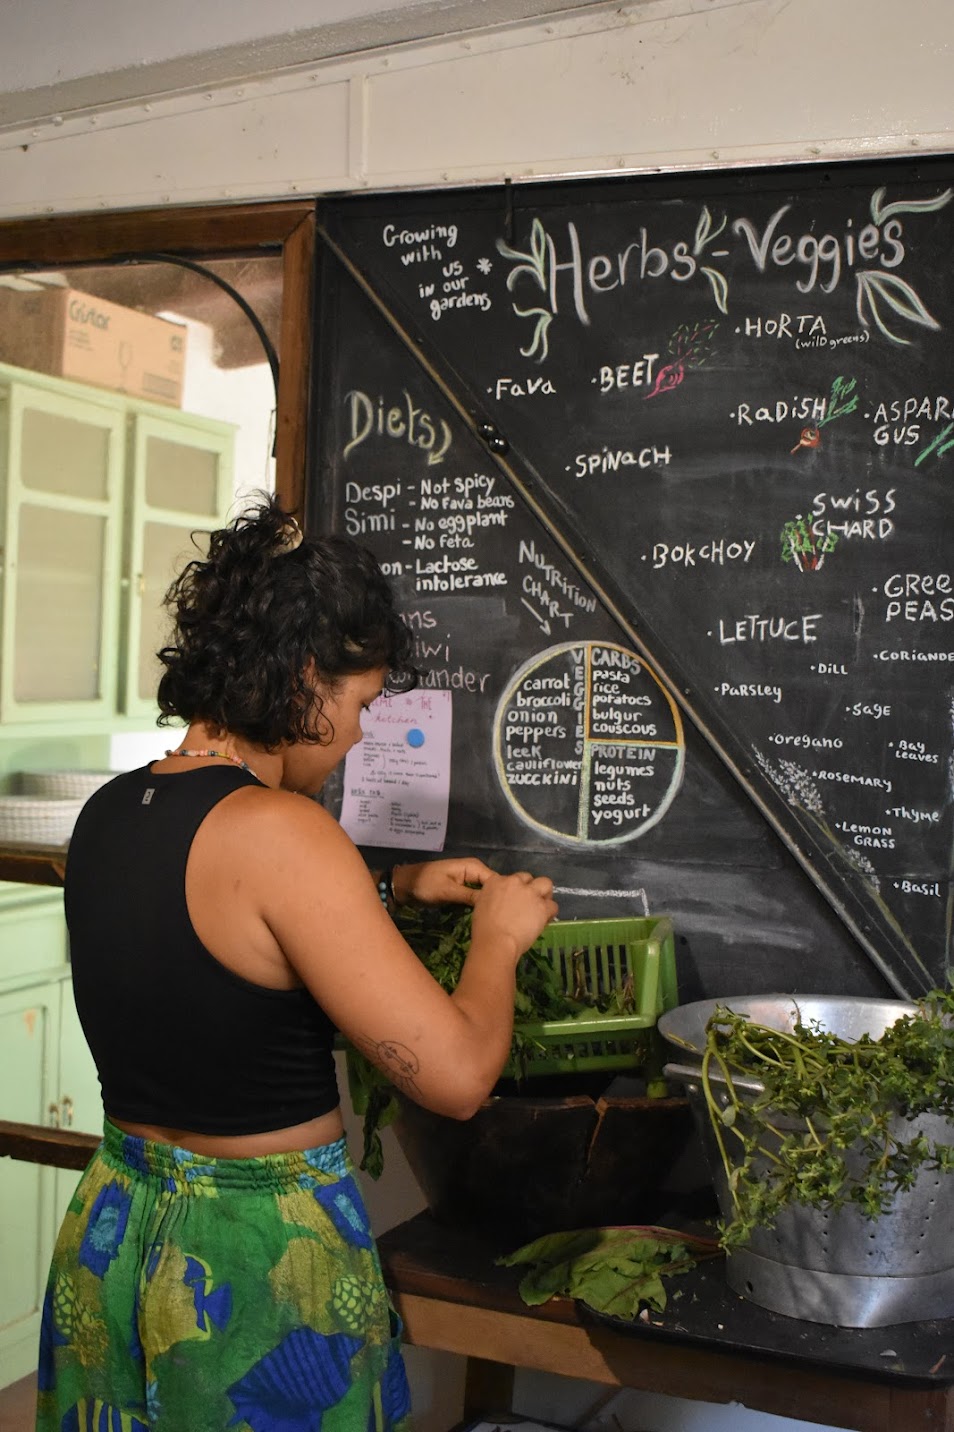 Cristar
Growing
with
us
in our
gardens
*
Herbs - Veggies
• HORTA
(wild greens)
• Fava
• BEET
• RaDiSH
• ASPAR
GUS
• SPINaCH
SWiSS
CHARD
• BOKCHOY
• GREE
PEAS
• LETTUCE
• CORIANDE
• DiLL
• PaRSLey
• SaGE
• Oregano
• Bay
Leaves
• ROSEMARY
• Thyme
• LEMON
GRASS
• Basil
Diets
Despi - Not spicy
- No Fava beans
Simi - No eggplant
- No Feta
on - Lactose
intolerance
ns
iwi
iander
NUTRITION
CHART
VEGGIES
carrot
broccoli
onion
peppers
leek
cauliflower
zucckini
CARBS
pasta
rice
potatoes
bulgur
couscous
PROTEIN
legumes
nuts
seeds
yogurt
kitchen